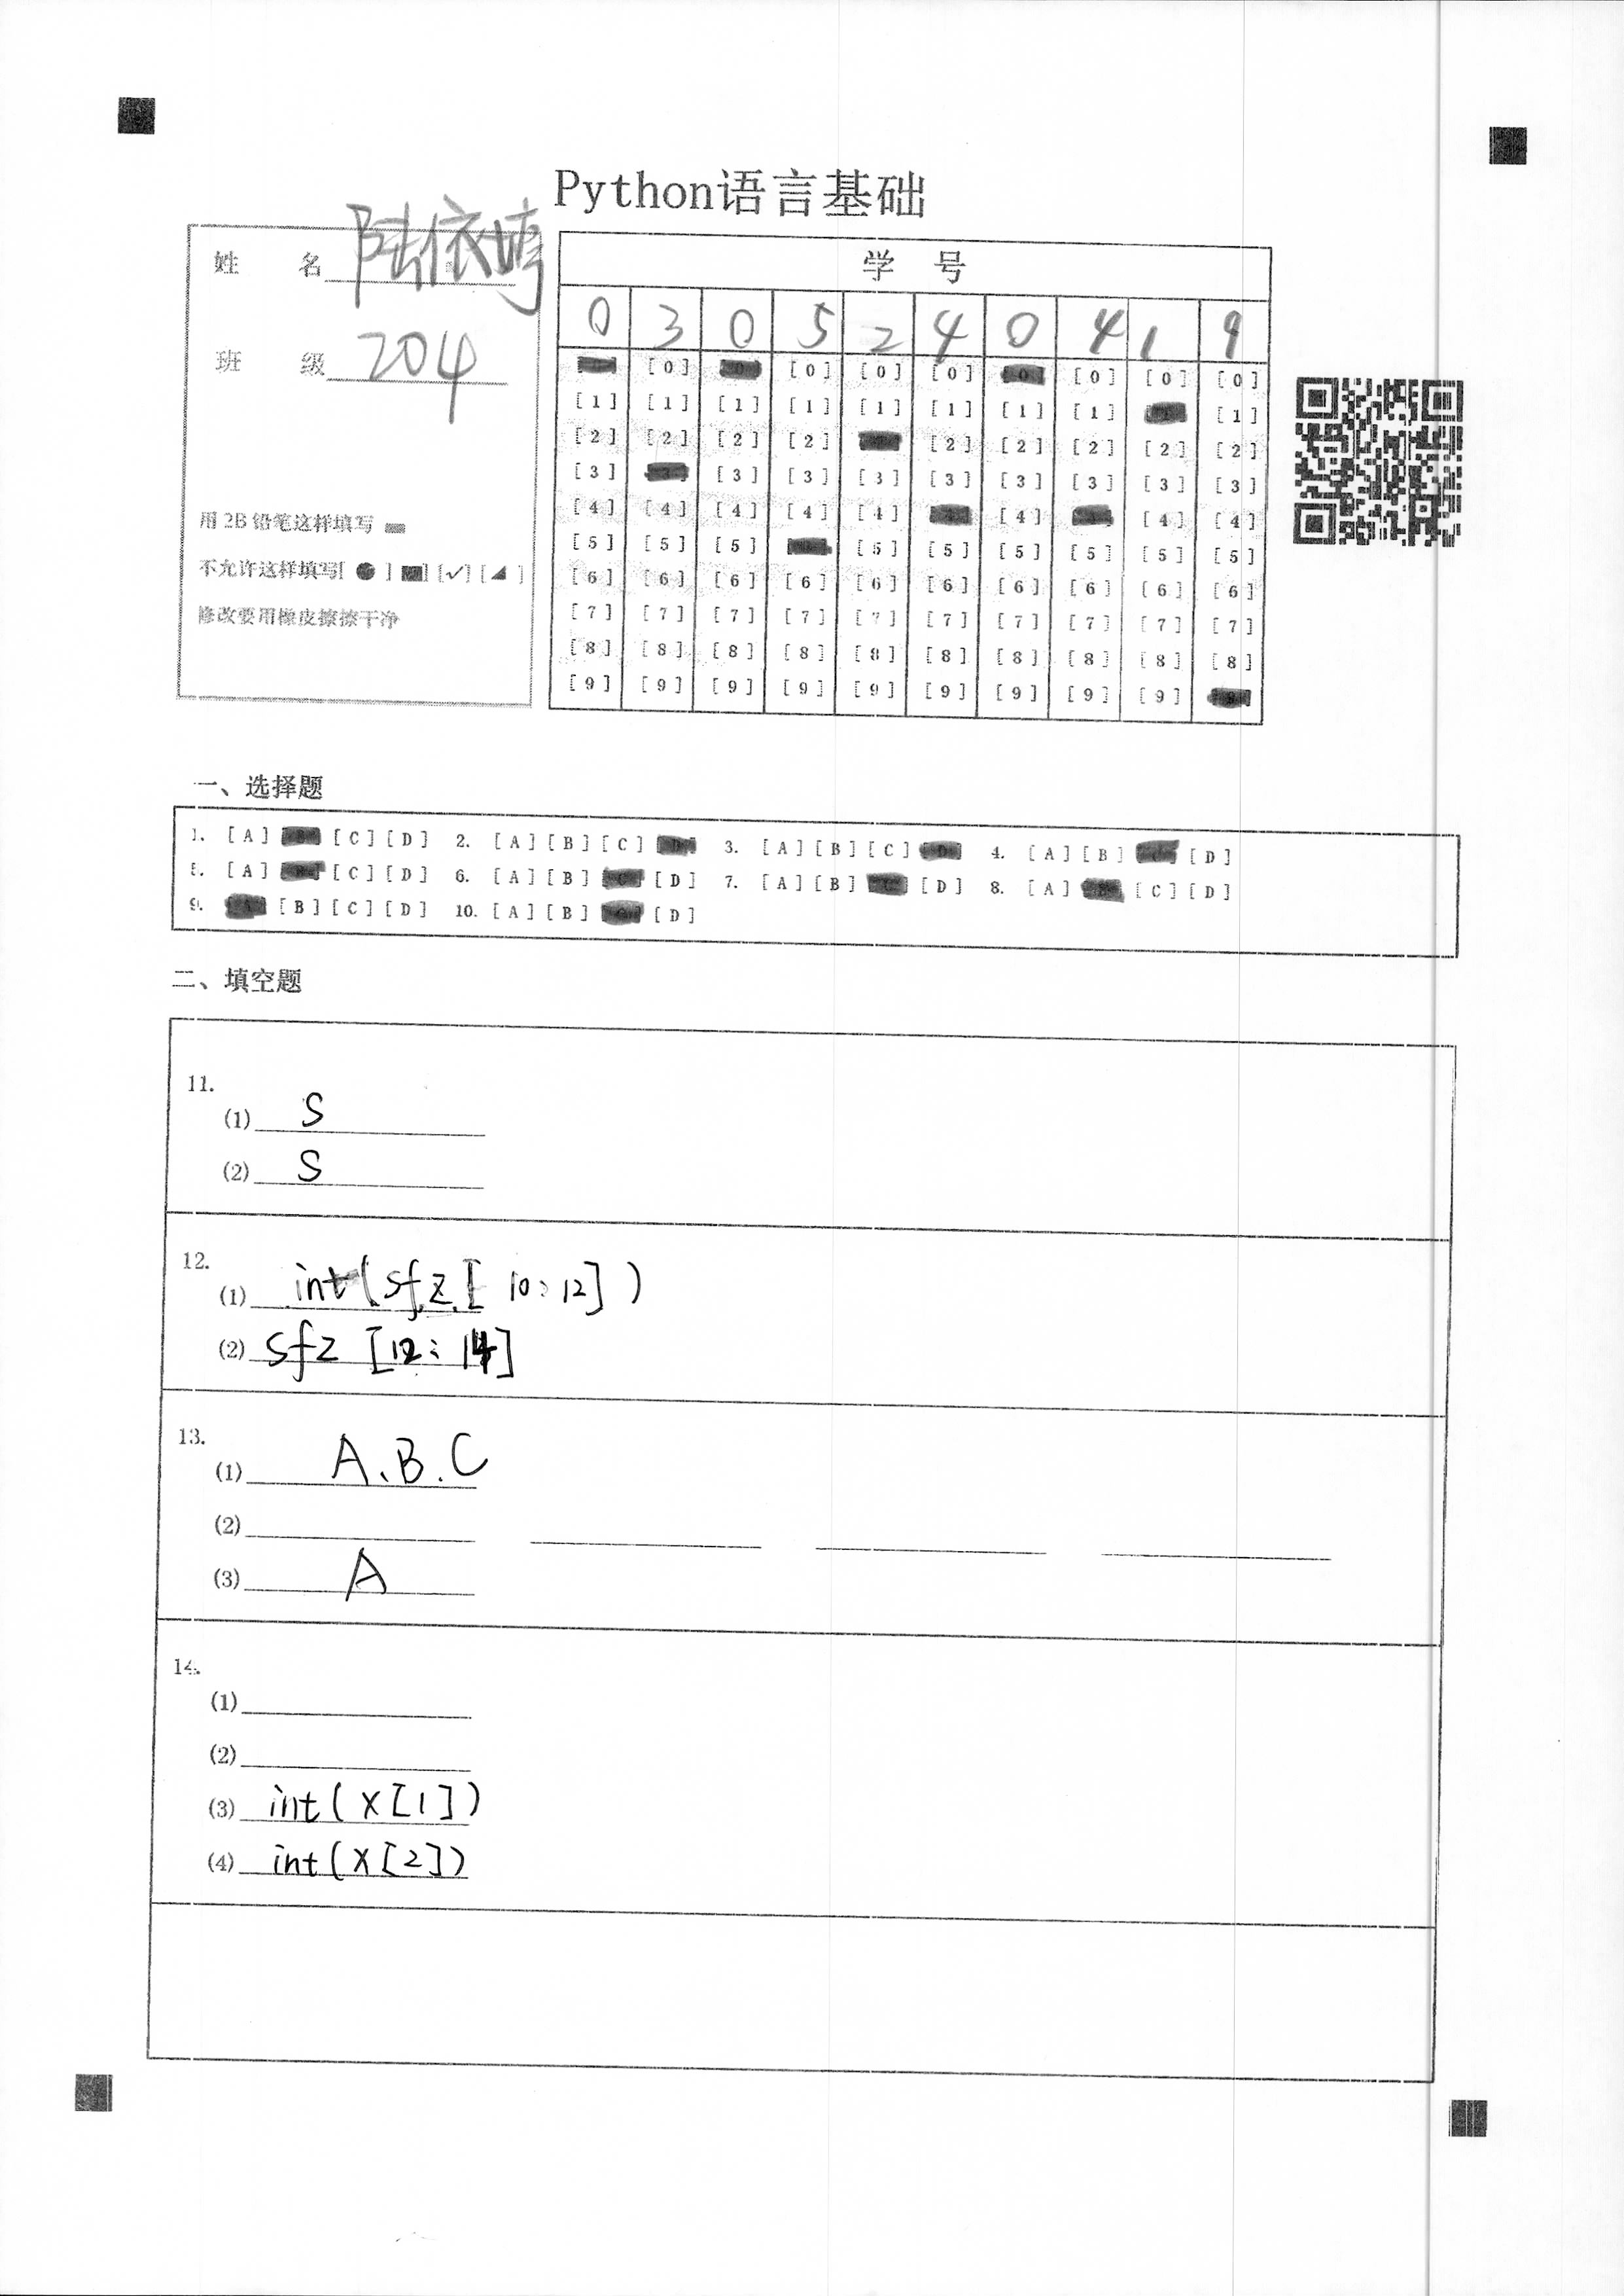 Python语言基础
姓 名 陆依婷
班 级 204
用 2B 铅笔这样填写
不允许这样填写[ ● ] [■] [✓] [◢ ]
修改要用橡皮擦擦干净
学 号
0 3 0 5 2 4 0 4 1 9
[0] [0] [0] [0] [0] [0] [0]
[1] [1] [1] [1] [1] [1] [1] [1] [1]
[2] [2] [2] [2] [2] [2] [2] [2] [2]
[3] [3] [3] [3] [3] [3] [3] [3] [3]
[4] [4] [4] [4] [4] [4] [4] [4]
[5] [5] [5] [5] [5] [5] [5] [5] [5]
[6] [6] [6] [6] [6] [6] [6] [6] [6] [6]
[7] [7] [7] [7] [7] [7] [7] [7] [7] [7]
[8] [8] [8] [8] [8] [8] [8] [8] [8] [8]
[9] [9] [9] [9] [9] [9] [9] [9] [9]
一、选择题
1. [A] [C] [D] 2. [A] [B] [C] 3. [A] [B] [C] 4. [A] [B] [D]
5. [A] [C] [D] 6. [A] [B] [D] 7. [A] [B] [D] 8. [A] [C] [D]
9. [B] [C] [D] 10. [A] [B] [D]
二、填空题
11.
(1) S
(2) S
12.
(1) int(sfz[10:12])
(2) sfz [12:14]
13.
(1) A、B、C
(2)
(3) A
14.
(1)
(2)
(3) int(x[1])
(4) int(x[2])